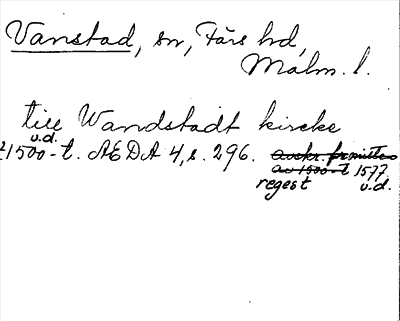 Vanstad, sn, Färs hd,
Malm. l.
till Wandstadt kircke
u.d.
1500-t. ÆDA 4, s. 296. avskr. fr mitten
av 1500-t 1577
regest u.d.